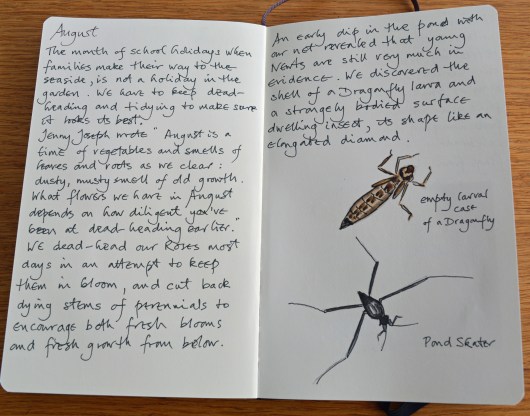 August
The month of school holidays when
families make their way to the
seaside, is not a holiday in the
garden. We have to keep dead-
heading and tidying to make sure
it looks its best.
Jenny Joseph wrote "August is a
time of vegetables and smells of
leaves and roots as we clear:
dusty, musty smell of old growth.
What flowers we have in August
depends on how diligent you've
been at dead-heading earlier."
We dead-head our Roses most
days in an attempt to keep
them in bloom, and cut back
dying stems of perennials to
encourage both fresh blooms
and fresh growth from below.
An early dip in the pond with
our net revealed that young
Newts are still very much in
evidence. We discovered the
shell of a Dragonfly larva and
a strangely bodied surface
dwelling insect, its shape like an
elongated diamond.
empty larval
cast
of a Dragonfly
Pond Skater